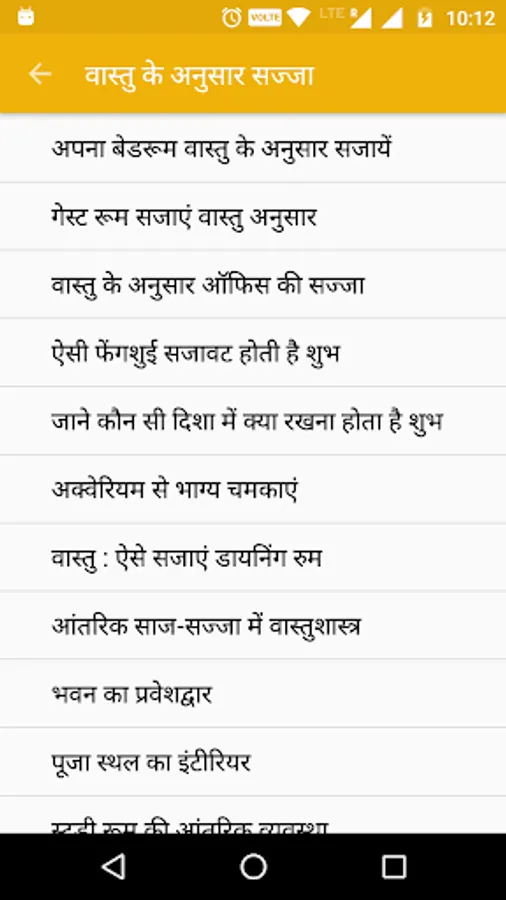 VOLTE LTE R 10:12
वास्तु के अनुसार सज्जा
अपना बेडरूम वास्तु के अनुसार सजायें
गेस्ट रूम सजाएं वास्तु अनुसार
वास्तु के अनुसार ऑफिस की सज्जा
ऐसी फेंगशुई सजावट होती है शुभ
जाने कौन सी दिशा में क्या रखना होता है शुभ
अक्वेरियम से भाग्य चमकाएं
वास्तु : ऐसे सजाएं डायनिंग रुम
आंतरिक साज-सज्जा में वास्तुशास्त्र
भवन का प्रवेशद्वार
पूजा स्थल का इंटीरियर
स्टडी रूम की आंतरिक व्यवस्था